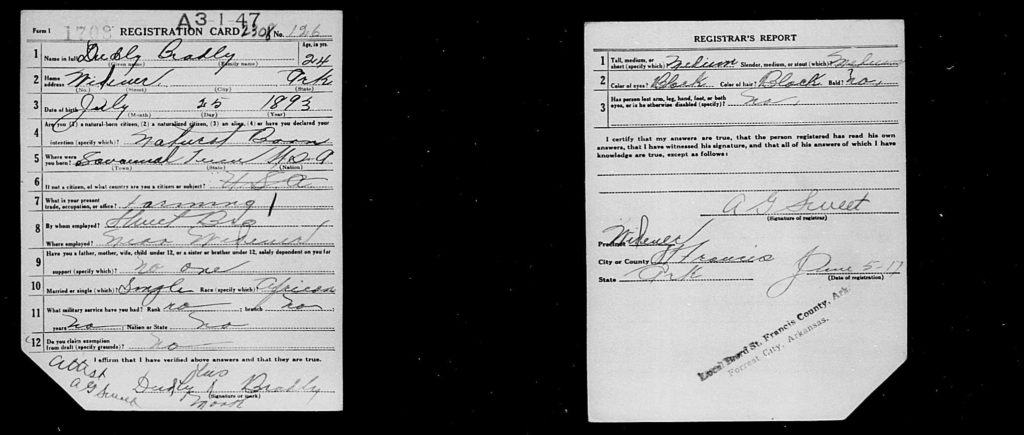 A3-1-47
Form 1 1708 REGISTRATION CARD 2308 No. 126
1 Name in full Dudly Bradly Age, in yrs. 24
(Given name) (Family name)
2 Home address Widener Ark
(No.) (Street) (City) (State)
3 Date of birth July 25 1893
(Month) (Day) (Year)
4 Are you (1) a natural-born citizen, (2) a naturalized citizen, (3) an alien, (4) or have you declared your
intention (specify which)? Born
5 Where were you born? Savannah Tenn U.S.A
(Town) (State) (Nation)
6 If not a citizen, of what country are you a citizen or subject? U S A
7 What is your present trade, occupation, or office? Farming 1
8 By whom employed? Bro
Where employed? Near Widener
9 Have you a father, mother, wife, child under 12, or a sister or brother under 12, solely dependent on you for
support (specify which)? No one
10 Married or single (which)? Single Race (specify which)? African
11 What military service have you had? Rank no ; branch no ;
years no ; Nation or State no
12 Do you claim exemption from draft (specify grounds)? no
I affirm that I have verified above answers and that they are true.
Attest
A G Sweet
his
Dudly X Bradly
(Signature or mark)
Mark
REGISTRAR'S REPORT
1 Tall, medium, or short (specify which)? Medium Slender, medium, or stout (which)? Medium
2 Color of eyes? Black Color of hair? Black Bald? no
3 Has person lost arm, leg, hand, foot, or both
eyes, or is he otherwise disabled (specify)? no
I certify that my answers are true, that the person registered has read his own
answers, that I have witnessed his signature, and that all of his answers of which I have
knowledge are true, except as follows:
A G Sweet
(Signature of registrar)
Precinct Widener
City or County St Francis
State Ark June 5, 17
(Date of registration)
Local Board St. Francis County, Ark.
Forrest City, Arkansas.